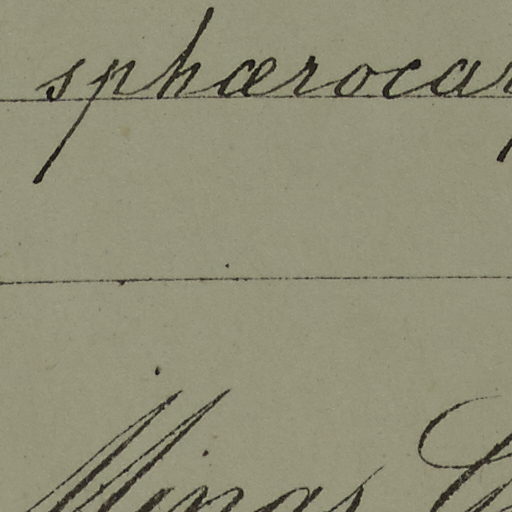 sphærocar
Minas G